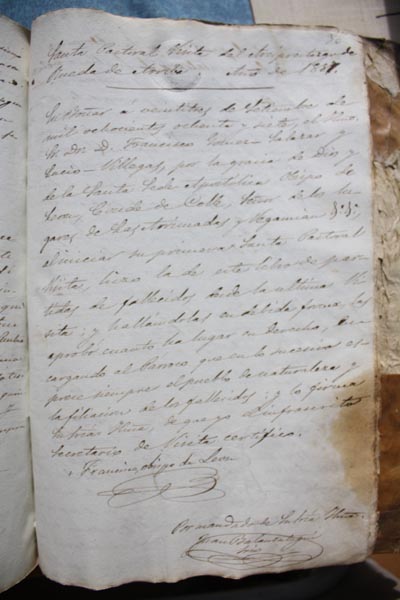 Santa Pastoral Visita del Arciprestazgo de
Rueda de Año de 1887.
En Boñar a veintitres de Setiembre de
mil ochocientos ochenta y siete, el Ilmo.
Sr. Dr. D. Francisco Gomez Salazar y
Lucio-Villegas, por la gracia de Dios y
de la Santa Sede Apostólica Obispo de
Leon, Conde de Colle, Señor de los lu-
gares de las Arrimadas y Vegamian &. &.
al iniciar su primera Santa Pastoral
Visita, hizo la de este libro de par-
tidas de fallecidos desde la ultima Vi-
sita; y hallándolas en debida forma las
aprobó cuanto ha lugar en derecho, en-
cargando al Parroco que en lo sucesivo es-
prese siempre el pueblo de naturaleza y
la filiacion de los fallecidos; y lo firma
Su Sría Ilma. de que yo el infrascrito
Secretario de Visita certifico.
Francisco Obispo de Leon
Por mandado de Su Sría Ilma.
Juan
Srio